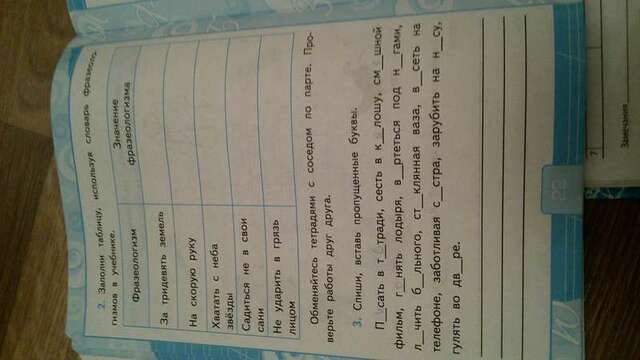 2. Заполни таблицу, используя словарь фразеоло-
гизмов в учебнике.
Фразеологизм
Значение
фразеологизма
За тридевять земель
На скорую руку
Хватать с неба
звёзды
Садиться не в свои
сани
Не ударить в грязь
лицом
Обменяйтесь тетрадями с соседом по парте. Про-
верьте работы друг друга.
3. Спиши, вставь пропущенные буквы.
П_и_сать в т_е_тради, сесть в к__лошу, см_е_шной
фильм, г_о_нять лодыря, в__ртеться под н__гами,
л__чить б__льного, ст__клянная ваза, в__сеть на
телефоне, заботливая с__стра, зарубить на н__су,
гулять во дв__ре.
22
7
Замечания